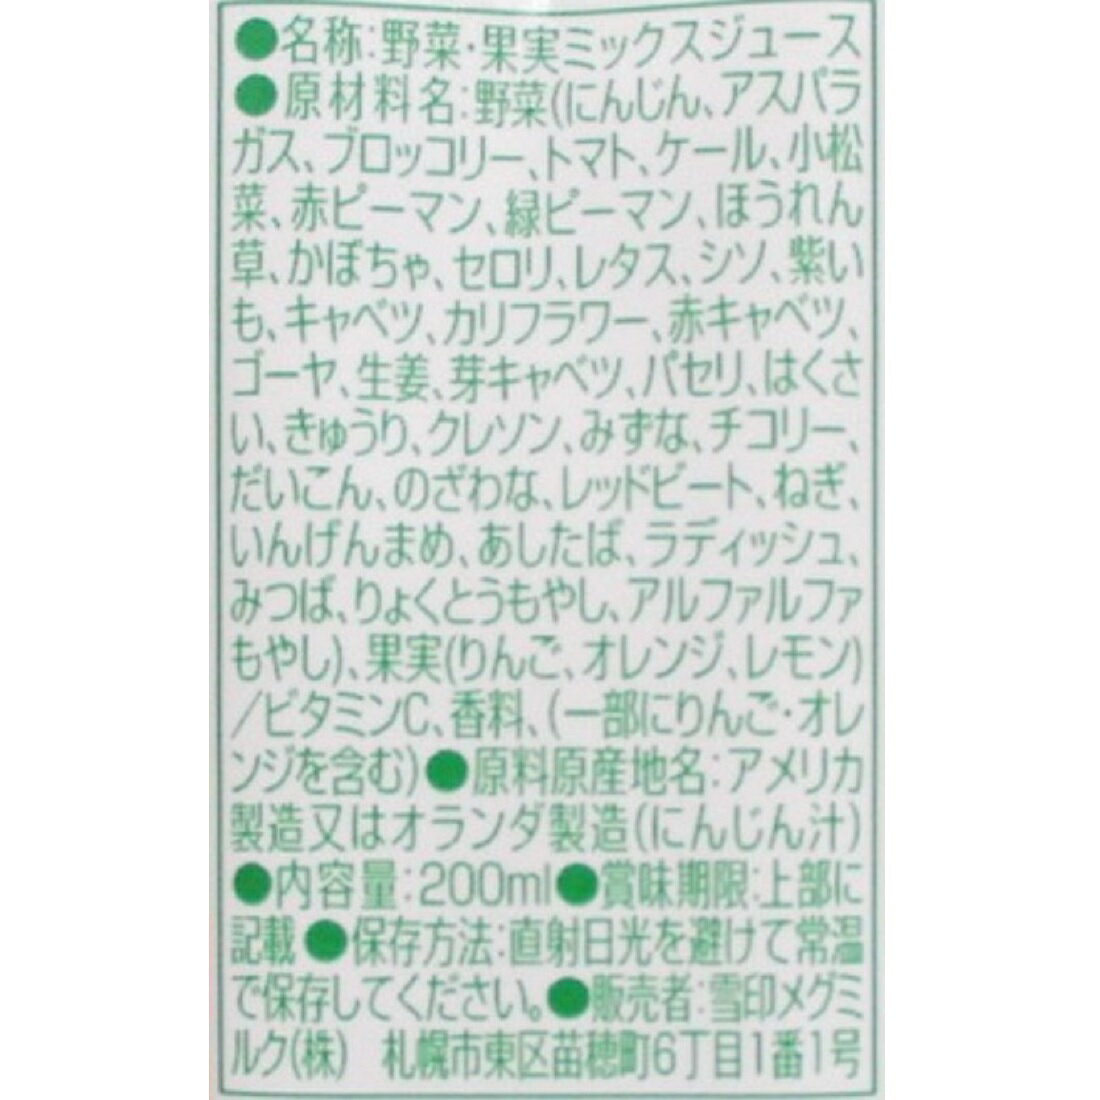 ●名称:野菜・果実ミックスジュース
●原材料名:野菜(にんじん、アスパラ
ガス、ブロッコリー、トマト、ケール、小松
菜、赤ピーマン、緑ピーマン、ほうれん
草、かぼちゃ、セロリ、レタス、シソ、紫い
も、キャベツ、カリフラワー、赤キャベツ、
ゴーヤ、生姜、芽キャベツ、パセリ、はくさ
い、きゅうり、クレソン、みずな、チコリー、
だいこん、のざわな、レッドビート、ねぎ、
いんげんまめ、あしたば、ラディッシュ、
みつば、りょくとうもやし、アルファルファ
もやし)、果実(りんご、オレンジ、レモン)
/ビタミンC、香料、(一部にりんご・オレ
ンジを含む)●原料原産地名:アメリカ
製造又はオランダ製造(にんじん汁)
●内容量:200ml●賞味期限:上部に
記載●保存方法:直射日光を避けて常温
で保存してください。●販売者:雪印メグミ
ルク(株) 札幌市東区苗穂町6丁目1番1号